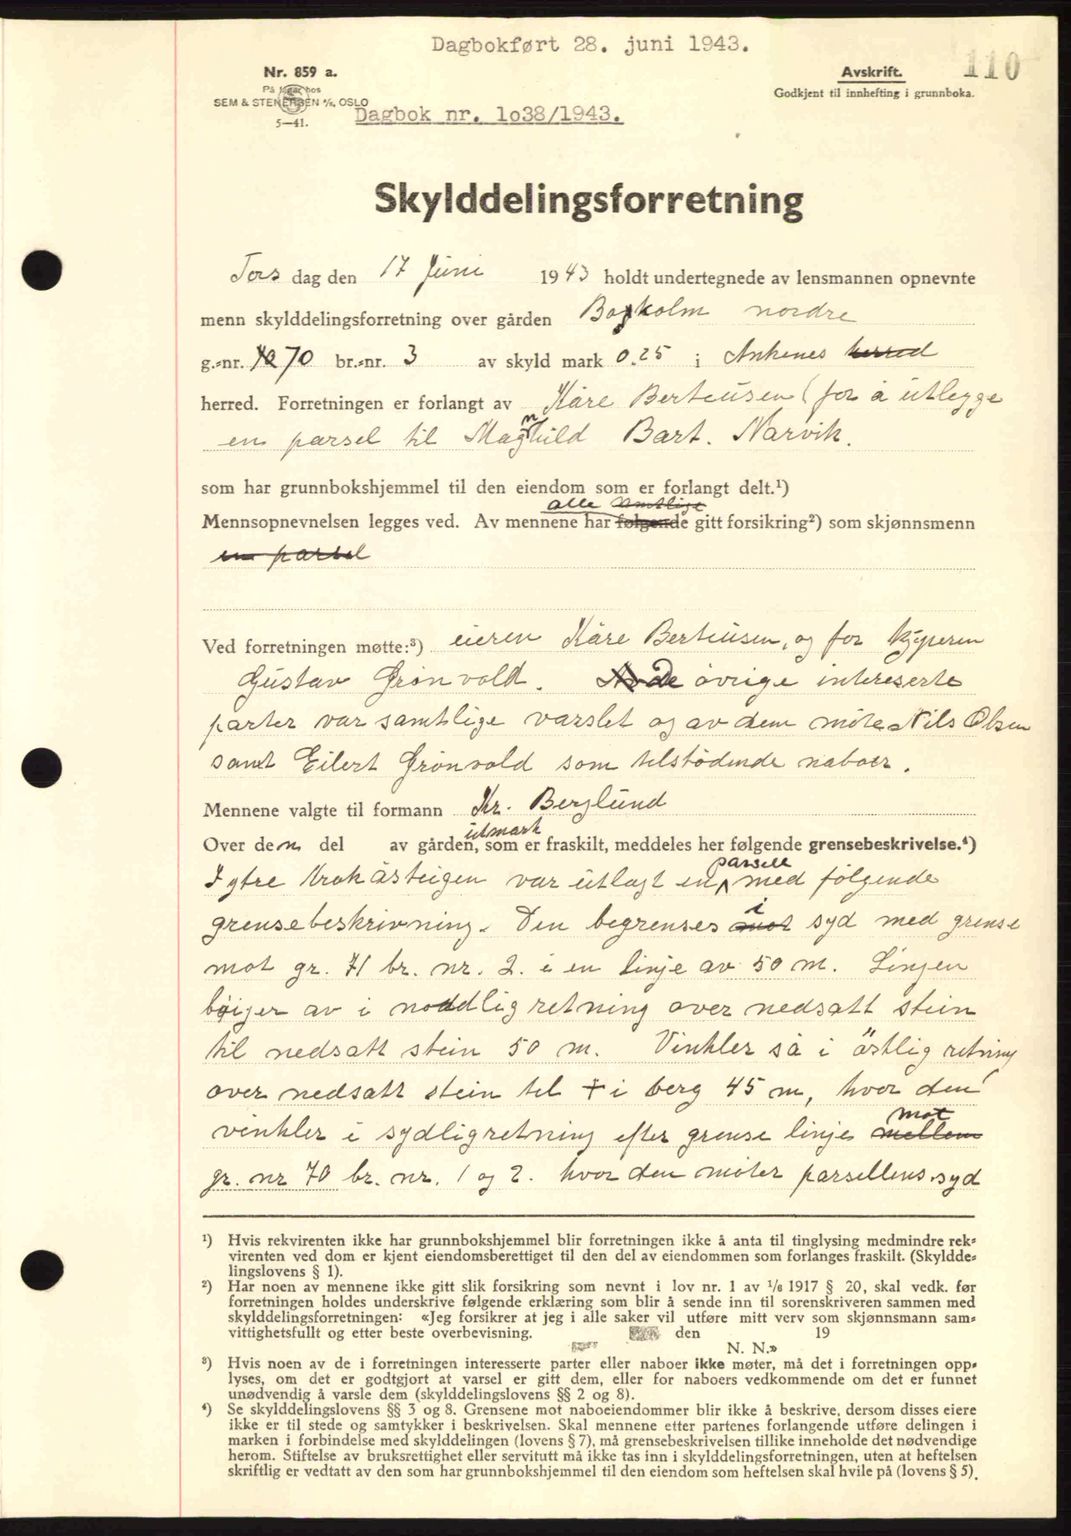 Dagbokført 28. juni 1943.
110
Nr. 859 a.
På lager hos
SEM & STENERSEN A/S, OSLO
5—41.
Avskrift.
Godkjent til innhefting i grunnboka.
Dagbok nr. 1o38/1943.
Skylddelingsforretning
Tors dag den 17 Juni 1943 holdt undertegnede av lensmannen opnevnte
menn skylddelingsforretning over gården nordre
g.-nr. 70 br.-nr. 3 av skyld mark 0.25 i Ankenes herred
herred. Forretningen er forlangt av Kåre Berteusen (for å utlegge
en parsel til Magnhild Bart. Narvik.
som har grunnbokshjemmel til den eiendom som er forlangt delt.¹)
alle samtlige
Mennsopnevnelsen legges ved. Av mennene har følgende gitt forsikring²) som skjønnsmenn
en parsel
Ved forretningen møtte:³) eieren Kåre Berteusen, og for kjøperen
Gustav Grönvold. De övrige intereserte
parter var samtlige varslet og av dem möte Nils Olsen
samt Eilert Grönvold som tilstödende naboer.
Mennene valgte til formann Kr. Berglund
utmark
Over den del av gården, som er fraskilt, meddeles her følgende grensebeskrivelse.⁴)
parsell
I ytre Krokåsteigen var utlagt en med følgende
i
grensebeskrivning. Den begrenses mot syd med grense
mot gr. 71 br. nr. 2. i en linje av 50 m. Linjen
böiger av i nordlig retning over nedsatt stein
til nedsatt stein 50 m. Vinkler så i östlig retning
over nedsatt stein til + i berg 45 m, hvor den
mot
vinkler i sydlig retning efter grense linje mellem
gr. nr 70 br. nr. 1 og 2. hvor den möter parsellens syd
¹) Hvis rekvirenten ikke har grunnbokshjemmel blir forretningen ikke å anta til tinglysing medmindre rek-
virenten ved dom er kjent eiendomsberettiget til den del av eiendommen som forlanges fraskilt. (Skyldde-
lingslovens § 1).
²) Har noen av mennene ikke gitt slik forsikring som nevnt i lov nr. 1 av 1/6 1917 § 20, skal vedk. før
forretningen holdes underskrive følgende erklæring som blir å sende inn til sorenskriveren sammen med
skylddelingsforretningen: «Jeg forsikrer at jeg i alle saker vil utføre mitt verv som skjønnsmann sam-
vittighetsfullt og etter beste overbevisning. den 19
N. N.»
³) Hvis noen av de i forretningen interesserte parter eller naboer ikke møter, må det i forretningen opp-
lyses, om det er godtgjort at varsel er gitt dem, eller for naboers vedkommende om det er funnet
unødvendig å varsle dem (skylddelingslovens §§ 2 og 8).
⁴) Se skylddelingslovens §§ 3 og 8. Grensene mot naboeiendommer blir ikke å beskrive, dersom disses eiere
ikke er til stede og samtykker i beskrivelsen. Skal mennene etter partenes forlangende utføre delingen i
marken i forbindelse med skylddelingen (lovens § 7), må grensebeskrivelsen tillike inneholde det nødvendige
herom. Stiftelse av bruksrettighet eller servitutt må ikke tas inn i skylddelingsforretningen, uten at heftelsen
skriftlig er vedtatt av den som har grunnbokshjemmel til den eiendom som heftelsen skal hvile på (lovens § 5).